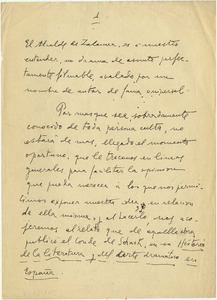 1
El Alcalde de Zalamea, es a nuestro
entender, un drama de asunto perfec-
tamente filmable, avalado por un
nombre de autor de fama universal.
Por más que sea sobradamente
conocido de toda persona culta, no
estará de más, llegado el momento
oportuno, que le tracemos en líneas
generales para facilitar la opinión
que pueda merecer a los que nos permi-
timos exponer nuestra idea en relación
de ella misma, y al hacerlo nos aco-
geremos al relato que de aquella obra
publicó el Conde de Schack, en su Historia
de la literatura y del arte dramático en
España.